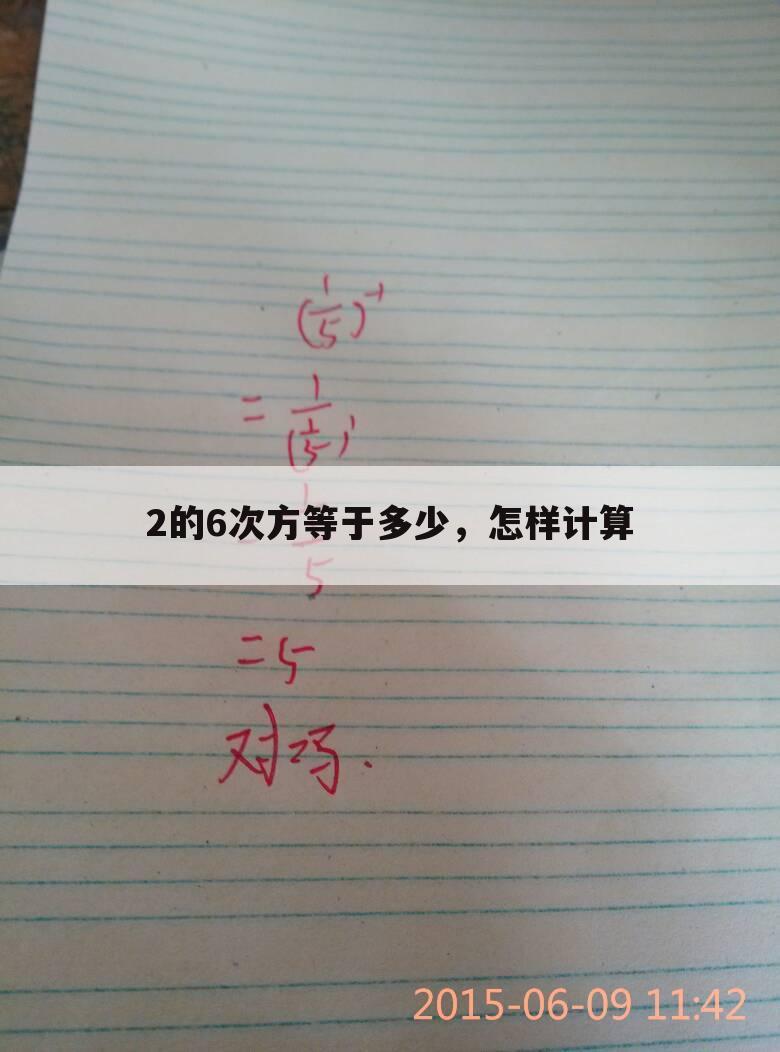 (1/5)^-1
= 1/(1/5)^1
2的6次方等于多少，怎样计算
5
=5
对吗.
2015-06-09 11:42